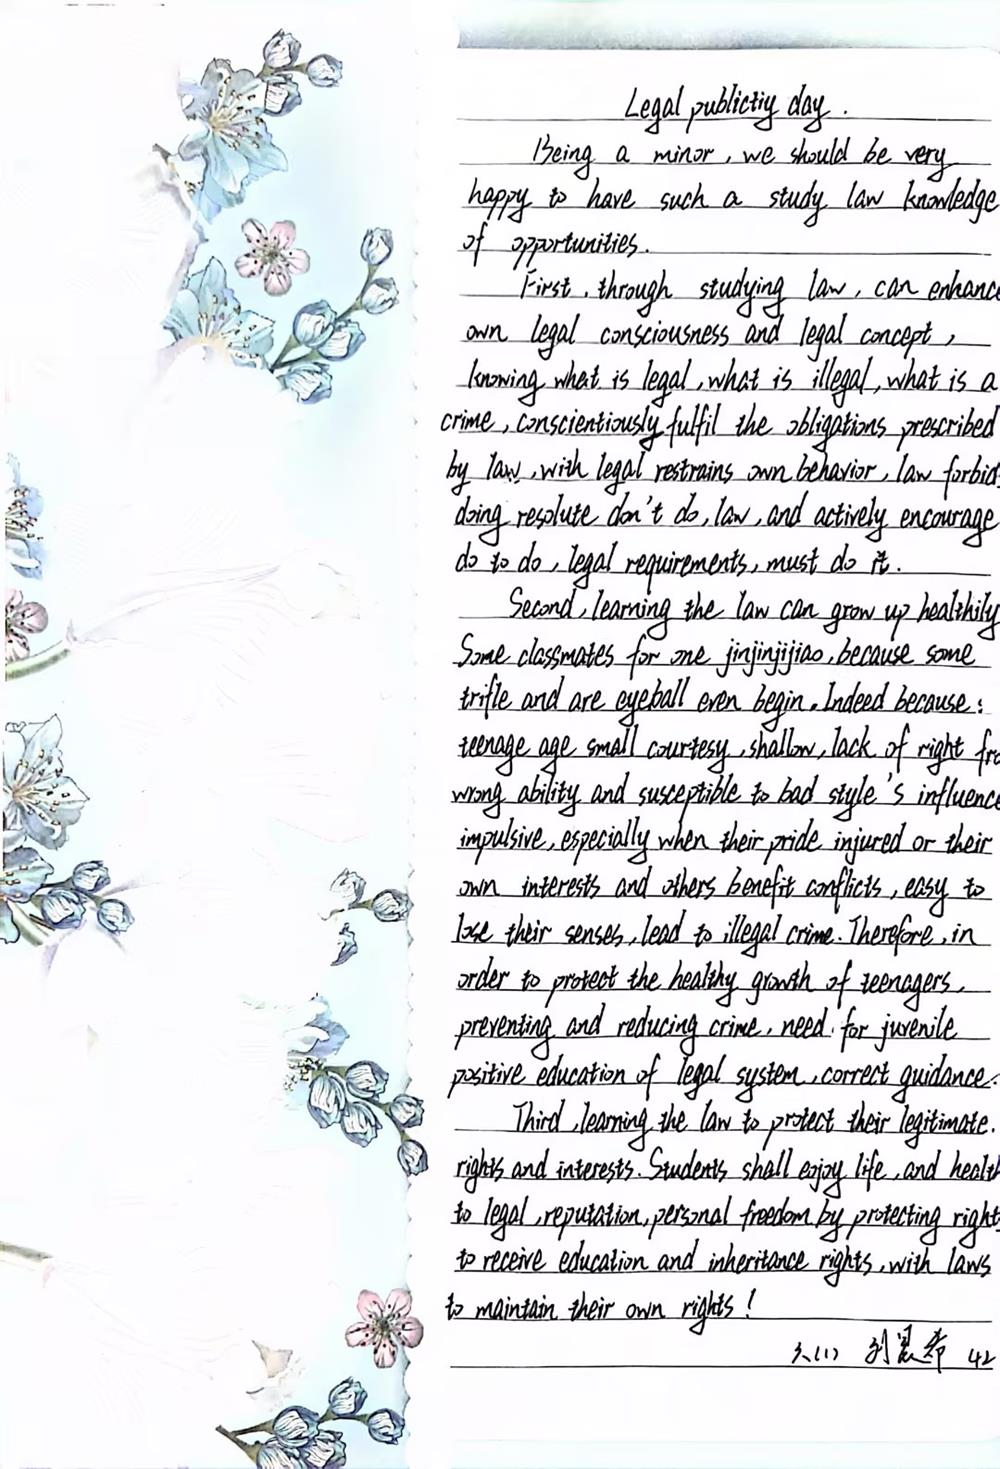 Legal publictiy day.
Being a minor, we should be very
happy to have such a study law knowledge
of opportunities.
First, through studying law, can enhance
own legal consciousness and legal concept,
knowing what is legal, what is illegal, what is a
crime, conscientiously fulfil the obligations prescribed
by law, with legal restrains own behavior, law forbids
doing resolute don't do, law, and actively encourage
do to do, legal requirements, must do it.
Second, learning the law can grow up healthily
Some classmates for one jinjinjijiao, because some
trifle and are eyeball even begin. Indeed because:
teenage age small courtesy, shallow, lack of right fro
wrong ability and susceptible to bad style's influence
impulsive, especially when their pride injured or their
own interests and others benefit conflicts, easy to
lose their senses, lead to illegal crime. Therefore, in
order to protect the healthy growth of teenagers,
preventing and reducing crime, need for juvenile
positive education of legal system, correct guidance.
Third, learning the law to protect their legitimate.
rights and interests. Students shall enjoy life, and health
to legal, reputation, personal freedom by protecting rights
to receive education and inheritance rights, with laws
to maintain their own rights!
六(1) 刘晨希 42